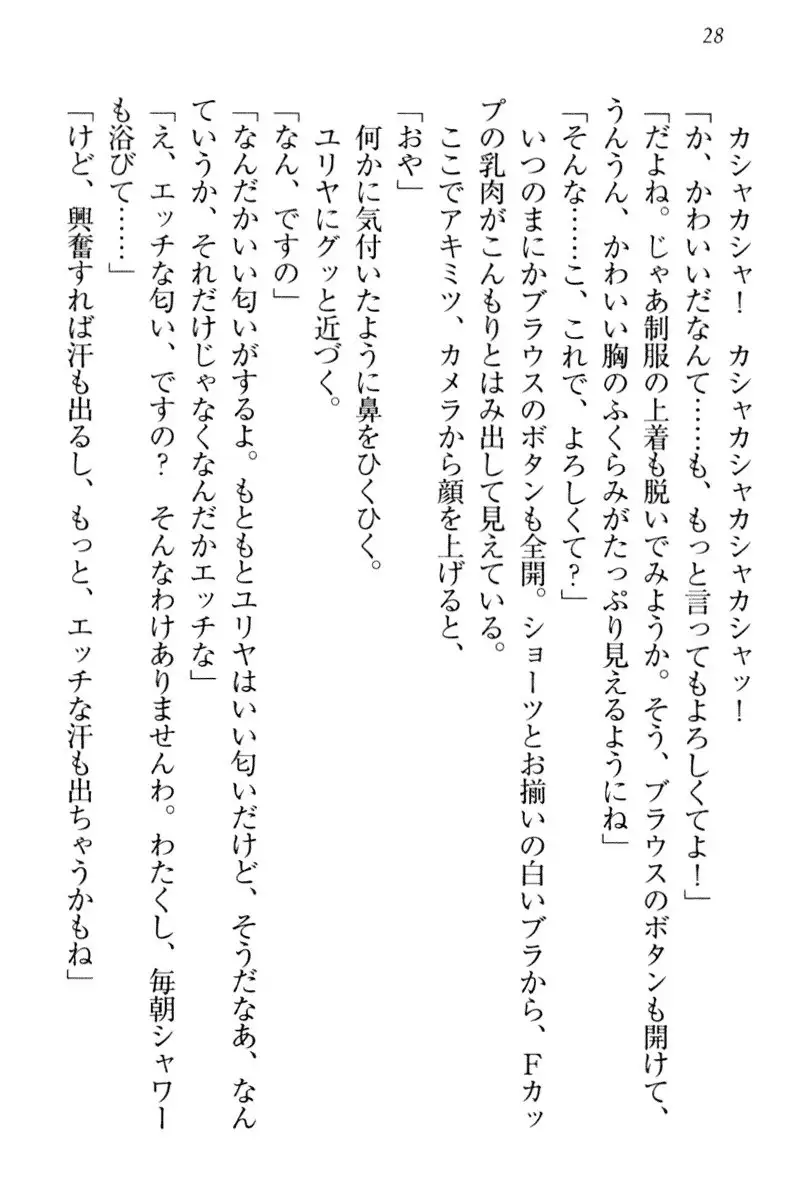 28
カシャカシャ！　カシャカシャカシャッ！
「か、かわいいだなんて……も、もっと言ってもよろしくてよ！」
「だよね。じゃあ制服の上着も脱いでみようか。そう、ブラウスのボタンも開けて、
うんうん、かわいい胸のふくらみがたっぷり見えるようにね」
「そんな……こ、これで、よろしくて？」
いつのまにかブラウスのボタンも全開。ショーツとお揃いの白いブラから、Ｆカッ
プの乳肉がこんもりとはみ出して見えている。
ここでアキミツ、カメラから顔を上げると、
「おや」
何かに気付いたように鼻をひくひく。
ユリヤにグッと近づく。
「なん、ですの」
「なんだかいい匂いがするよ。もともとユリヤはいい匂いだけど、そうだなあ、なん
ていうか、それだけじゃなくなんだかエッチな」
「え、エッチな匂い、ですの？　そんなわけありませんわ。わたくし、毎朝シャワー
も浴びて……」
「けど、興奮すれば汗も出るし、もっと、エッチな汗も出ちゃうかもね」